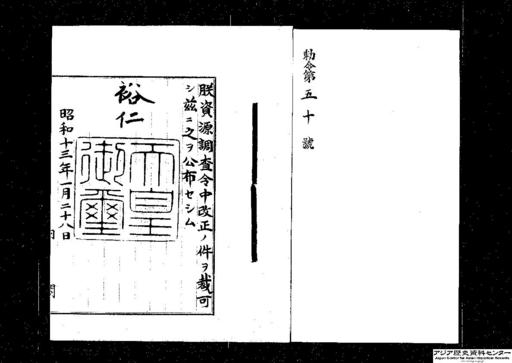 勅令第五十號
朕資源調查令中改正ノ件ヲ裁可
シ玆ニ之ヲ公布セシム
裕仁
天皇
御璽
昭和十三年一月二十八日
アジア歴史資料センター
Japan Center for Asian Historical Records